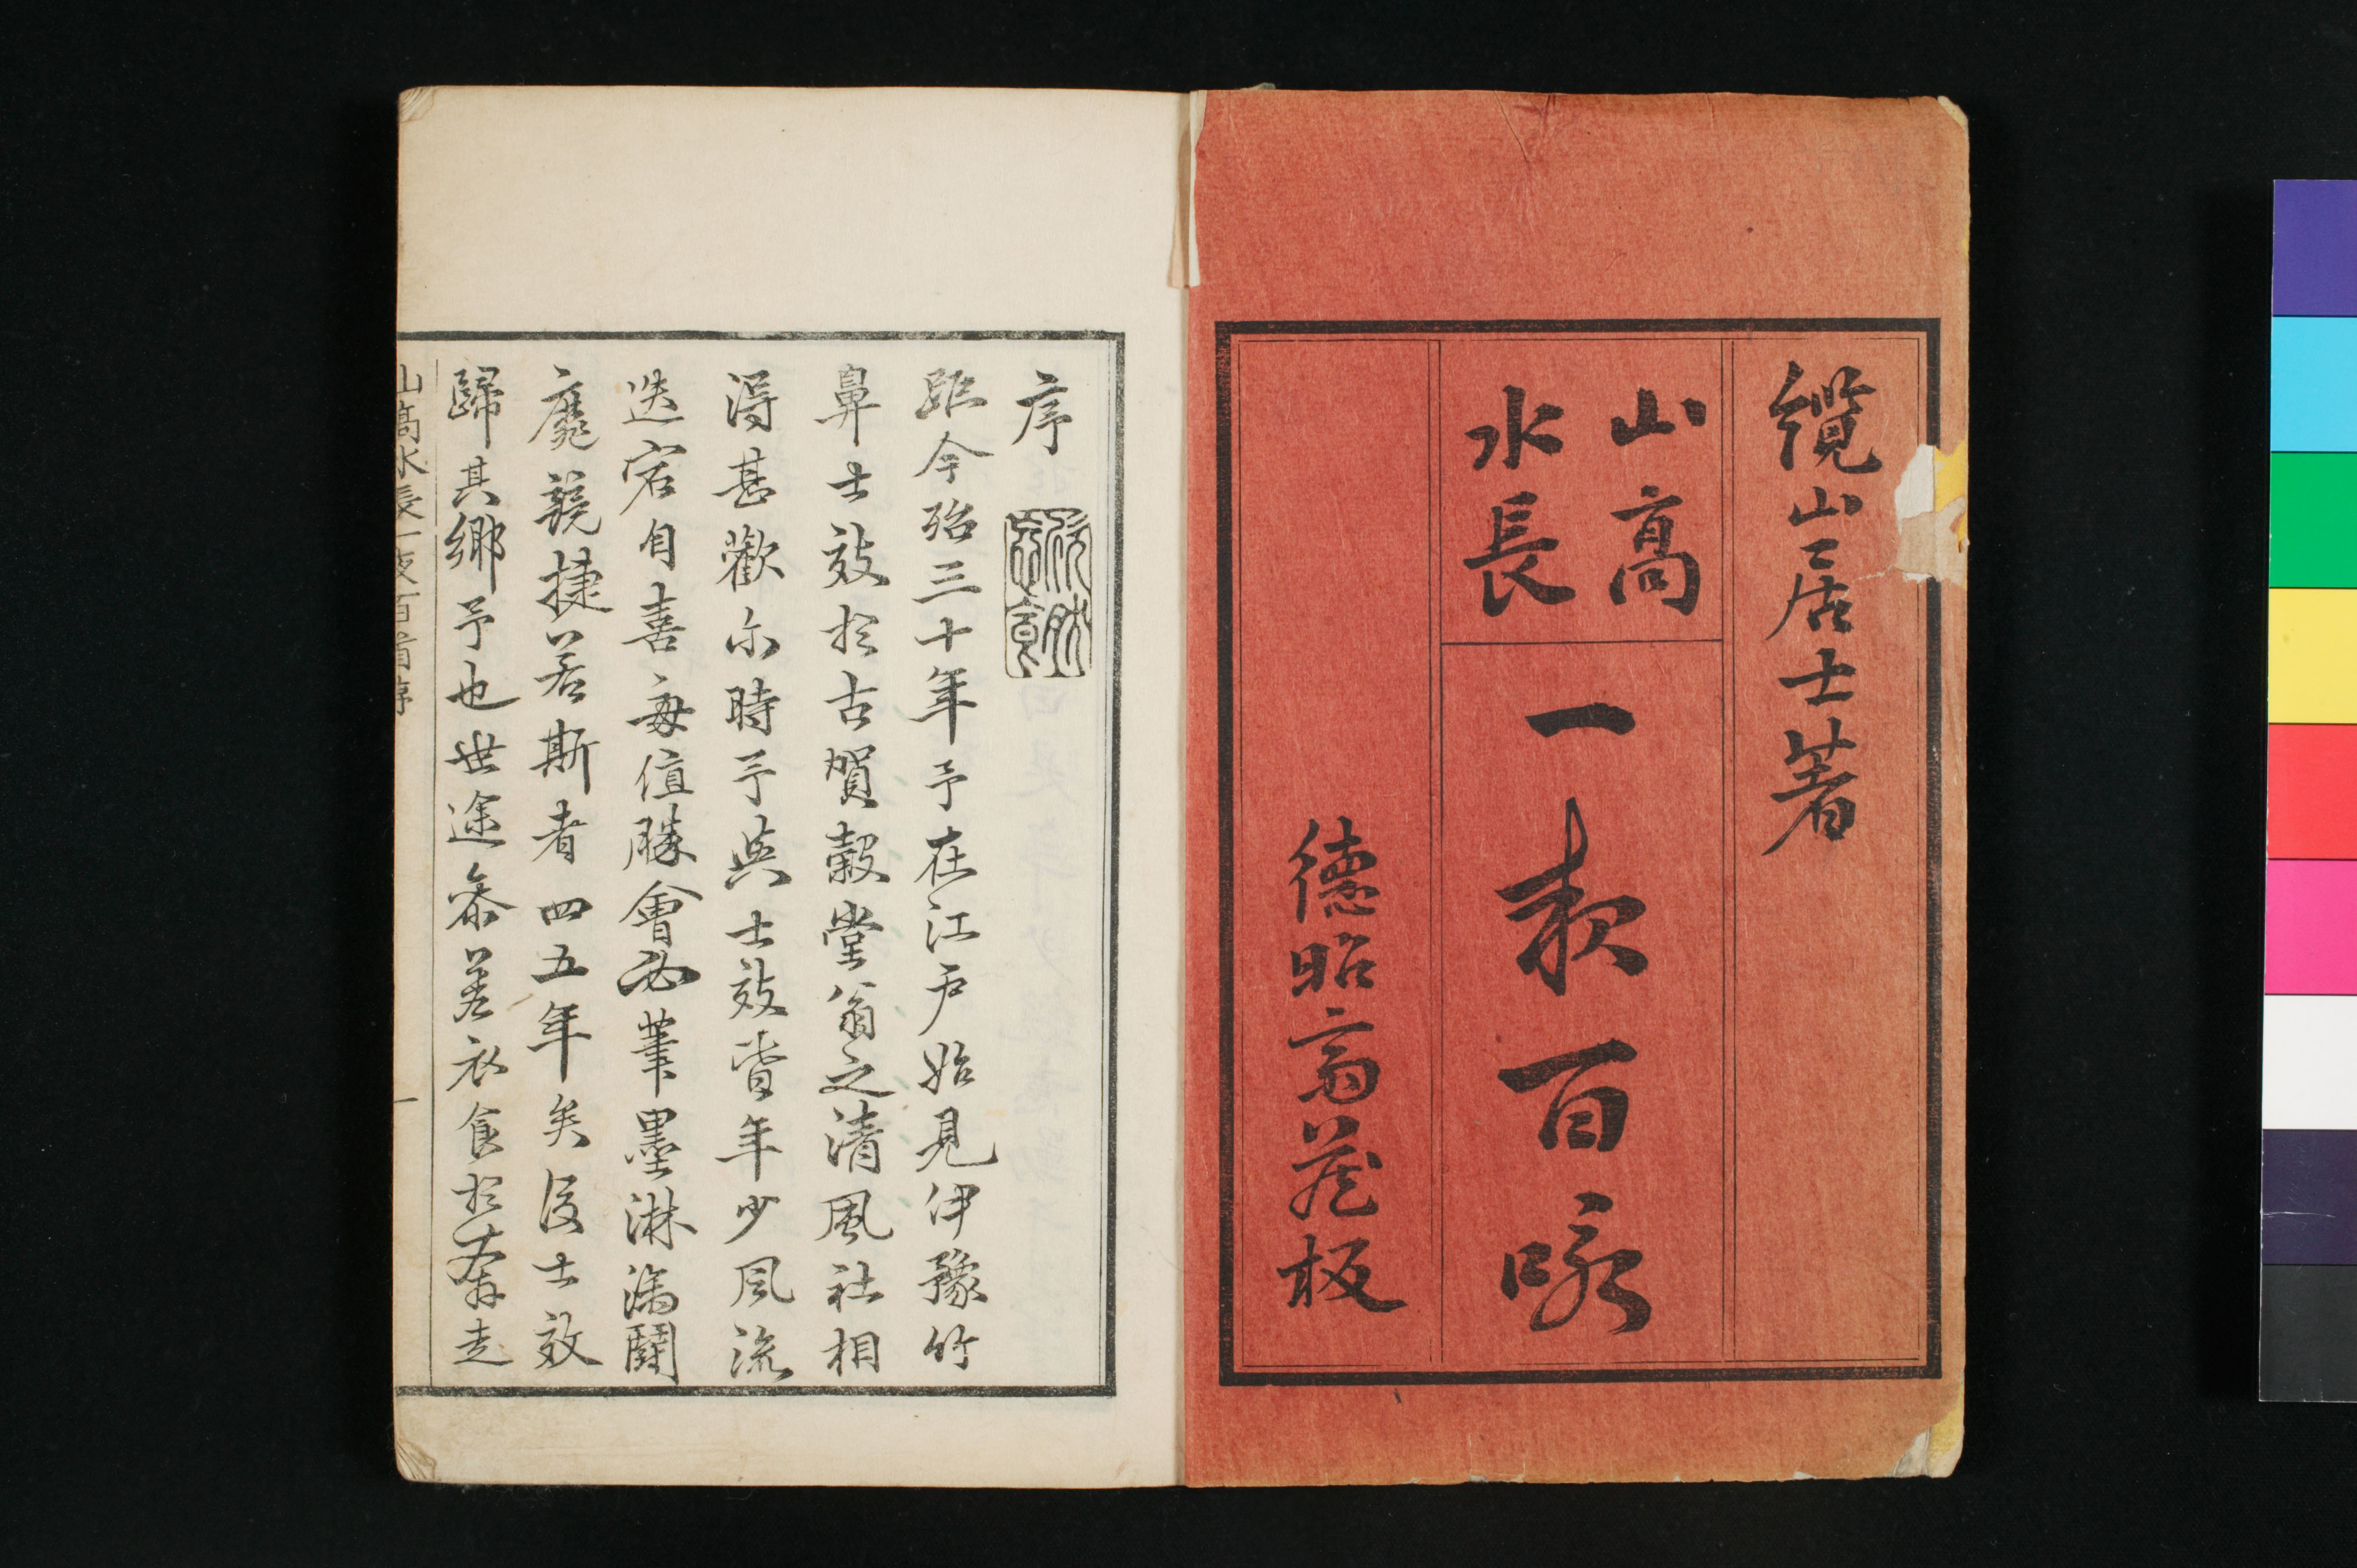 纜山居士著
山高
水長
一夜百咏
德昭斎蔵板
序
距今殆三十年予在江戸始見伊豫竹
鼻士效於古賀穀堂翁之清風社相
得甚歡尓時予與士效皆年少風流
迭宕自喜毎值勝會必筆墨淋漓鬪
靡競捷若斯者四五年矣後士效
歸其鄉予也世途參差衣食於奔走
山高水長一夜百首序
一